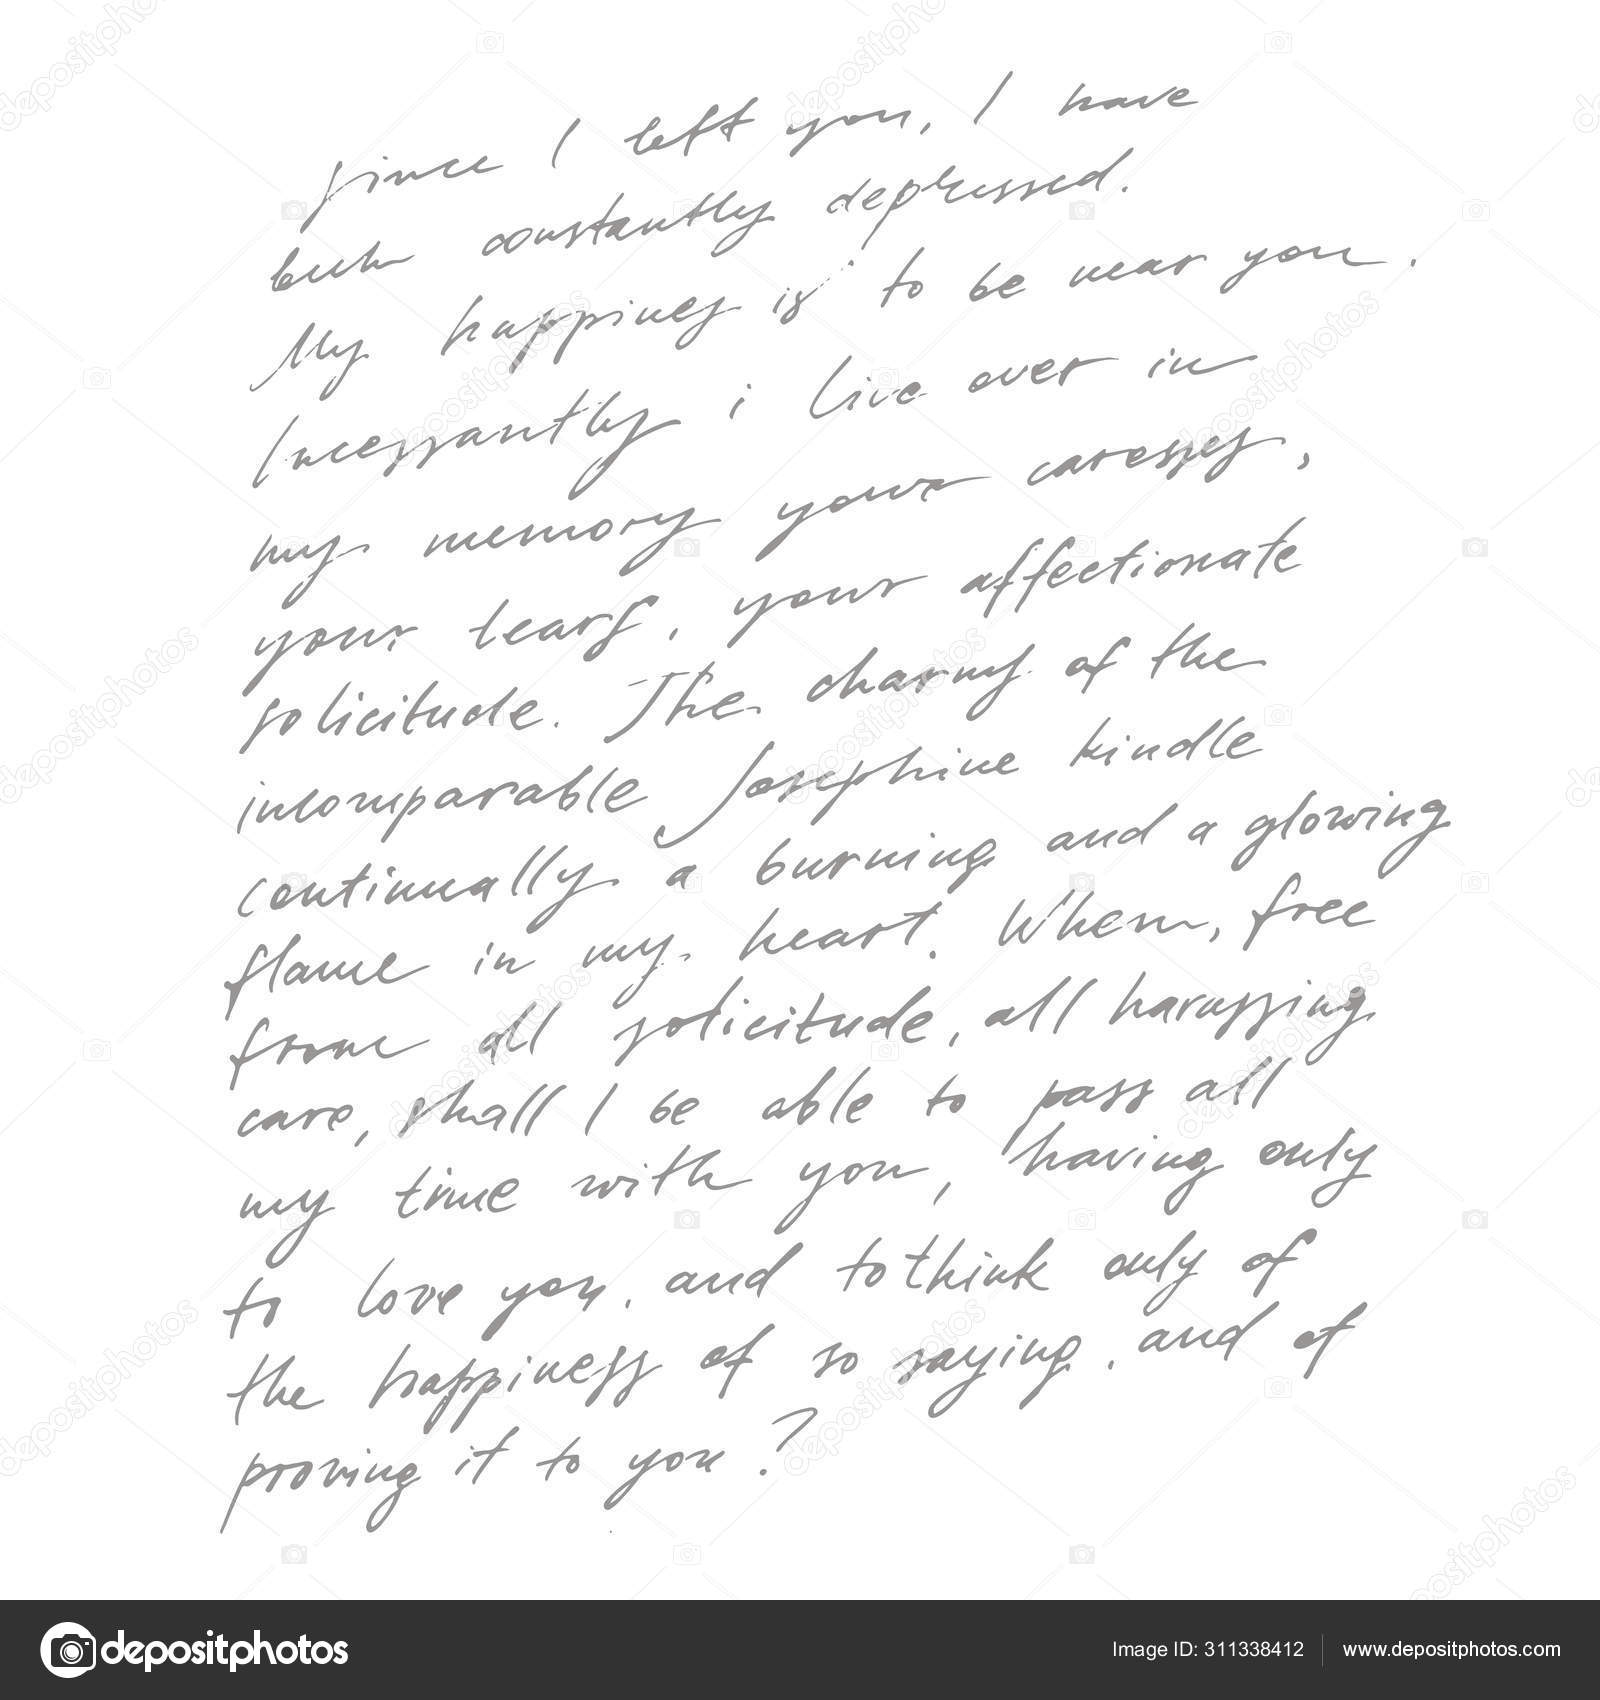 Since I left you, I have
been constantly depressed.
My happiness is to be near you.
Incessantly i live over in
my memory your caresses,
your tears, your affectionate
solicitude. The charms of the
incomparable Josephine kindle
continually a burning and a glowing
flame in my heart. When, free
from all solicitude, all harassing
care, shall I be able to pass all
my time with you, having only
to love you, and to think only of
the happiness of so saying, and of
proving it to you?
depositphotos
Image ID: 311338412 www.depositphotos.com